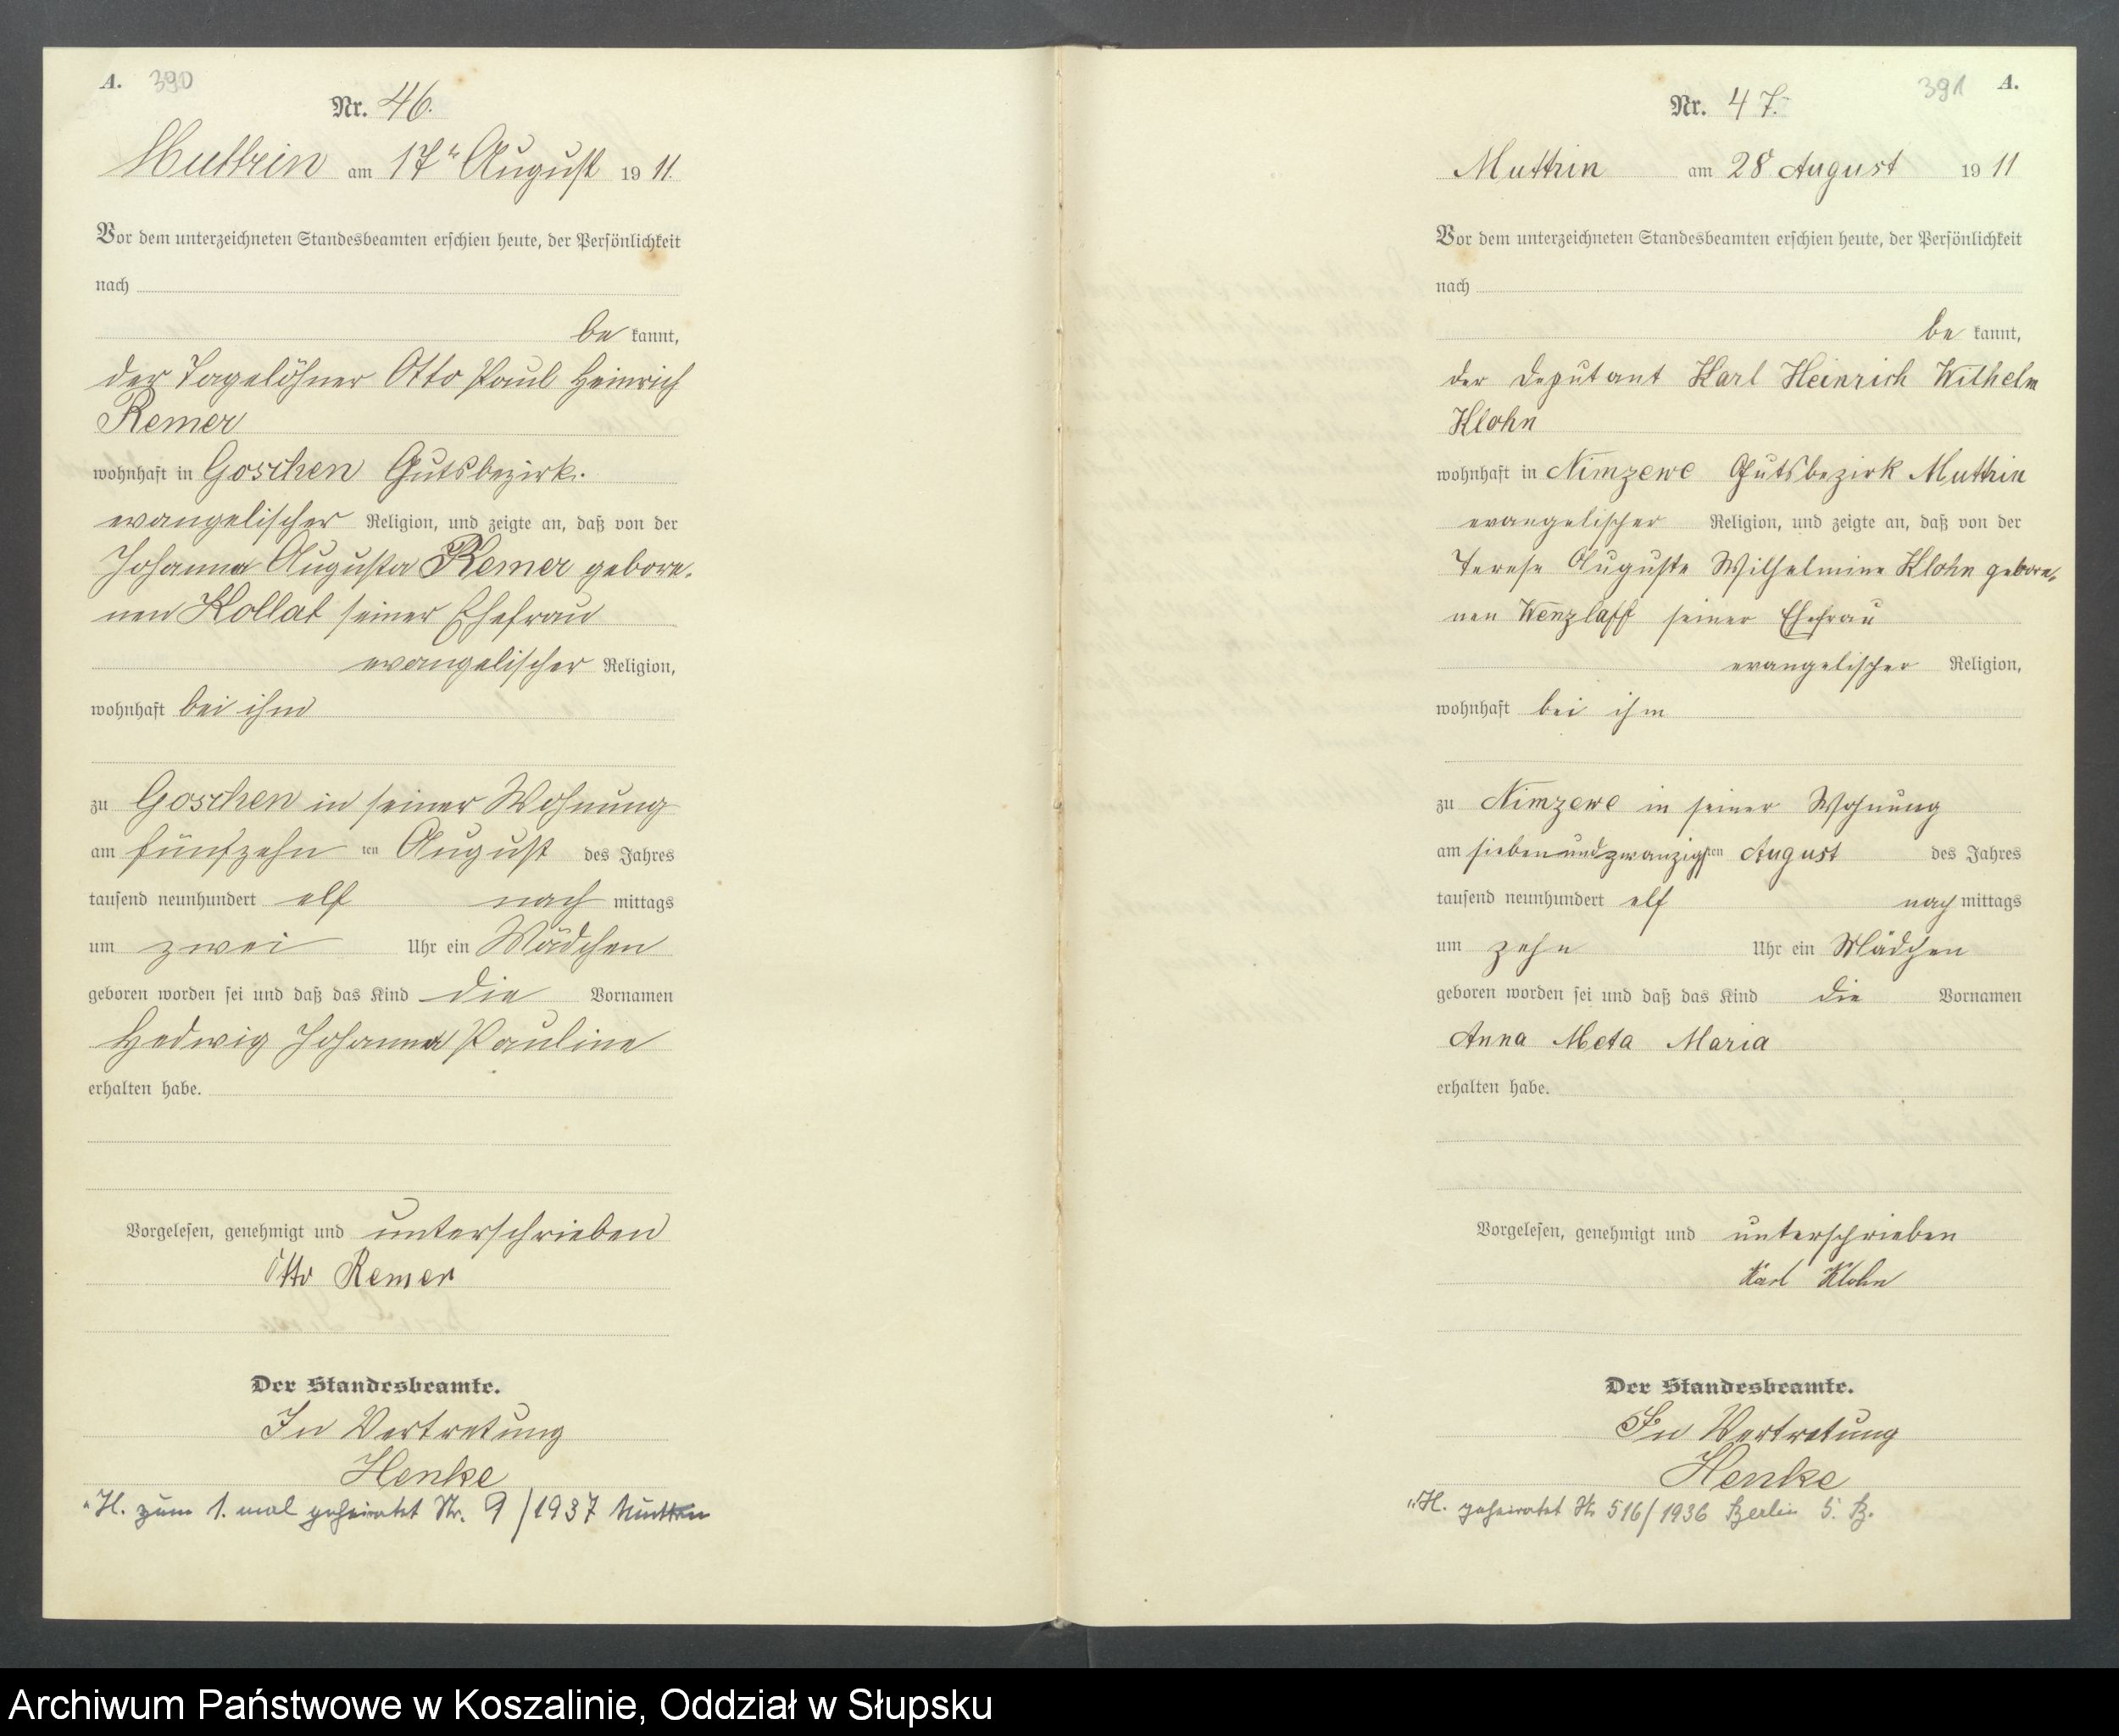 A. 390
Nr. 46.
Muttrin am 17ⁿ August 1911.
Vor dem unterzeichneten Standesbeamten erschien heute, der Persönlichkeit
nach
be kannt,
der Tagelöhner Otto Paul Heinrich
Remer
wohnhaft in Goschen Gutsbezirk.
evangelischer Religion, und zeigte an, daß von der
Johanna Augusta Remer gebore-
nen Kollat seiner Ehefrau
evangelischer Religion,
wohnhaft bei ihm
zu Goschen in seiner Wohnung
am fünfzehn ten August des Jahres
tausend neunhundert elf nach mittags
um zwei Uhr ein Mädchen
geboren worden sei und daß das Kind die Vornamen
Hedwig Johanna Pauline
erhalten habe.
Vorgelesen, genehmigt und unterschrieben
Otto Remer
Der Standesbeamte.
In Vertretung
Henke
"H. zum 1. mal geheiratet Nr. 9/1937 Muttrin
391 A.
Nr. 47.
Muttrin am 28 August 1911
Vor dem unterzeichneten Standesbeamten erschien heute, der Persönlichkeit
nach
be kannt,
der Deputant Karl Heinrich Wilhelm
Klohn
wohnhaft in Nimzewe Gutsbezirk Muttrin
evangelischer Religion, und zeigte an, daß von der
Terese Auguste Wilhelmine Klohn gebore-
nen Wenzlaff seiner Ehefrau
evangelischer Religion,
wohnhaft bei ihm
zu Nimzewe in seiner Wohnung
am siebenundzwanzigsten August des Jahres
tausend neunhundert elf nach mittags
um zehn Uhr ein Mädchen
geboren worden sei und daß das Kind die Vornamen
Anna Meta Maria
erhalten habe.
Vorgelesen, genehmigt und unterschrieben
Karl Klohn
Der Standesbeamte.
In Vertretung
Henke
"H. geheiratet Nr. 516/1936 Berlin 5. B.
Archiwum Państwowe w Koszalinie, Oddział w Słupsku